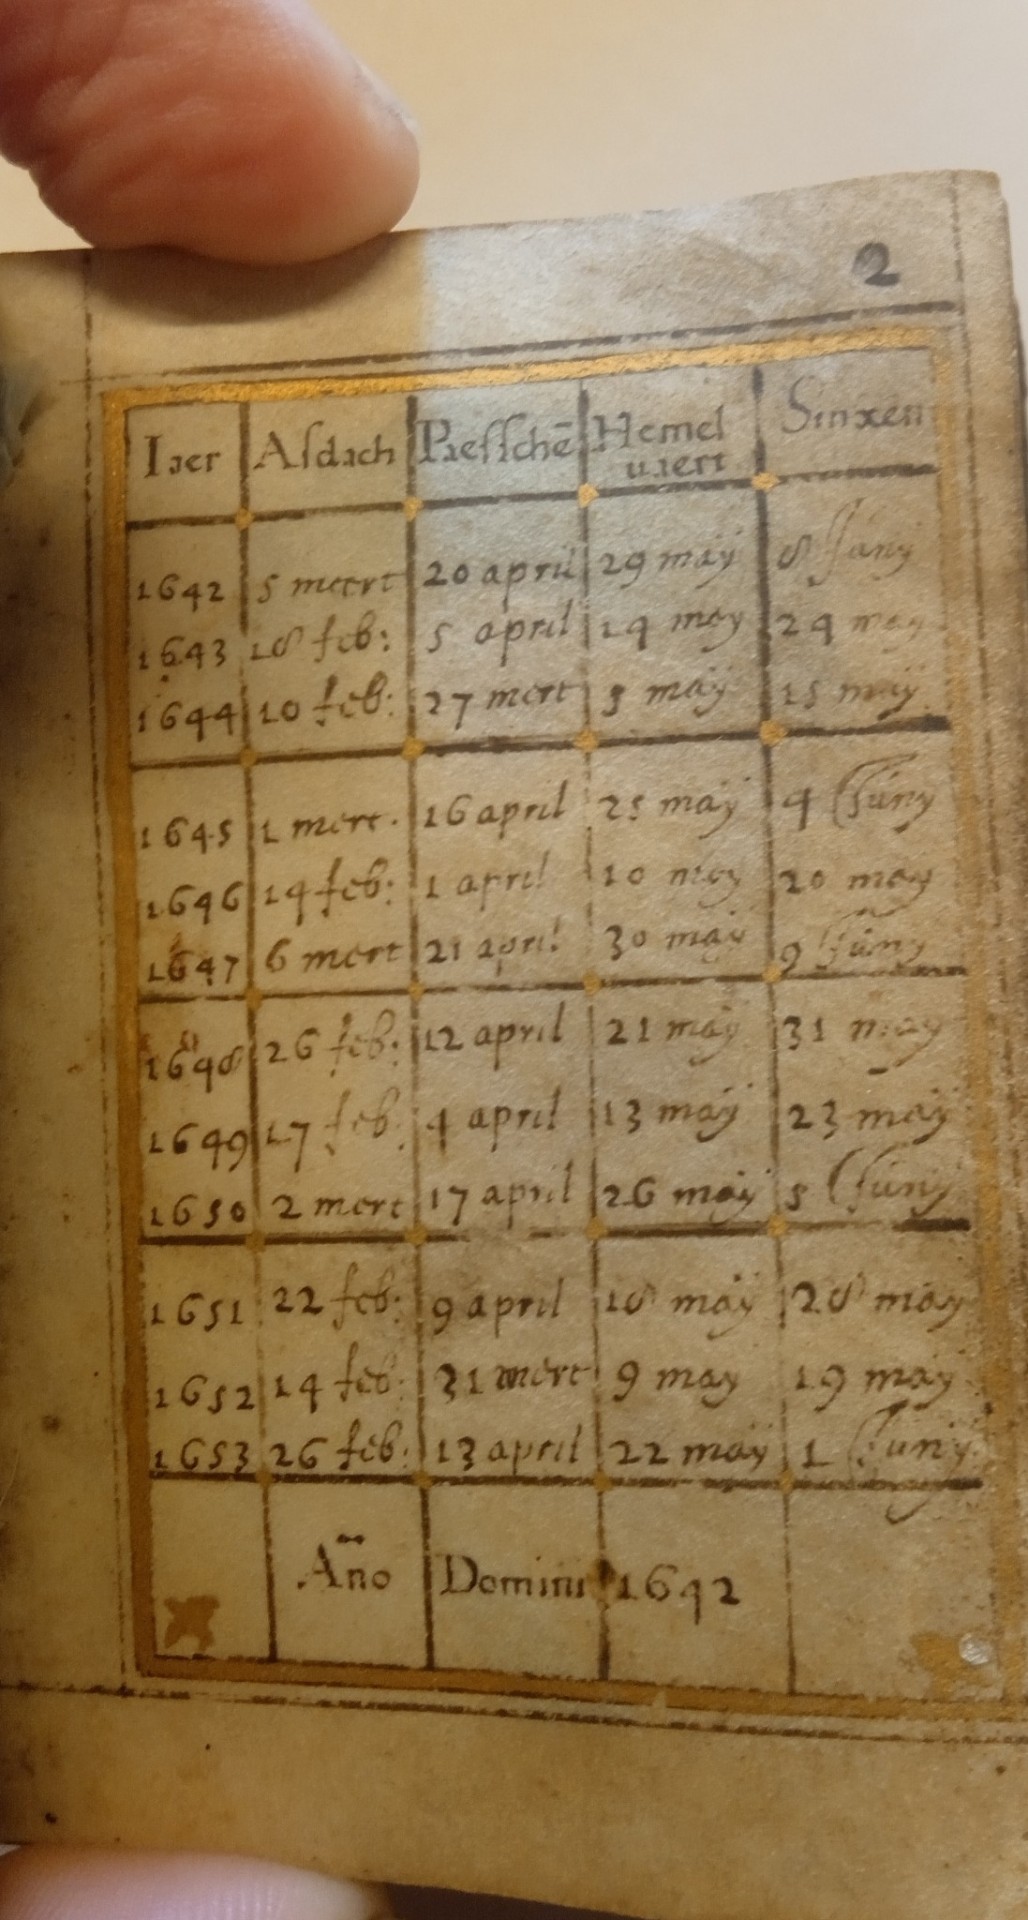 2
Iaer Asdach Paesschē Hemel uaert Sinxen
1642 5 meert 20 april 29 maÿ 8 Juny
1643 18 feb: 5 april 14 maÿ 24 maÿ
1644 10 feb: 27 mert 5 maÿ 15 maÿ
1645 1 mert. 16 april 25 maÿ 4 Juny
1646 14 feb: 1 april 10 maÿ 20 maÿ
1647 6 mert 21 april 30 maÿ 9 Juny
1648 26 feb: 12 april 21 maÿ 31 maÿ
1649 17 feb: 4 april 13 maÿ 23 maÿ
1650 2 mert 17 april 26 maÿ 5 Juny
1651 22 feb: 9 april 18 maÿ 28 maÿ
1652 14 feb: 31 mert 9 maÿ 19 maÿ
1653 26 feb: 13 april 22 maÿ 1 Juny
Año Domini 1642